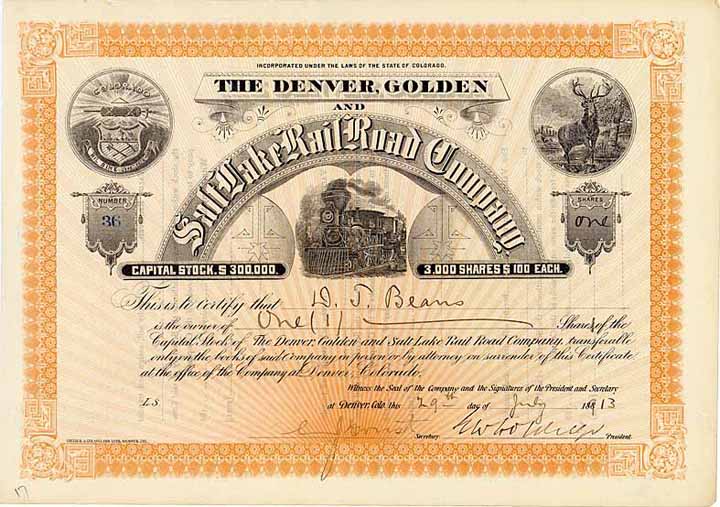 INCORPORATED UNDER THE LAWS OF THE STATE OF COLORADO.
THE DENVER, GOLDEN
AND
Salt Lake Rail Road Company,
COLORADO
NUMBER
36
SHARES
One
CAPITAL STOCK, $300,000.
3,000 SHARES $100 EACH.
This is to Certify that D. J. Beans
is the owner of One (1) Shares of the
Capital Stock of The Denver, Golden and Salt Lake Rail Road Company, transferable
only on the books of said Company in person or by attorney on surrender of this Certificate
at the office of the Company at Denver, Colorado.
Witness the Seal of the Company and the Signatures of the President and Secretary
L.S. at Denver, Colo. this 29th day of July 1913
Secretary. President.
17